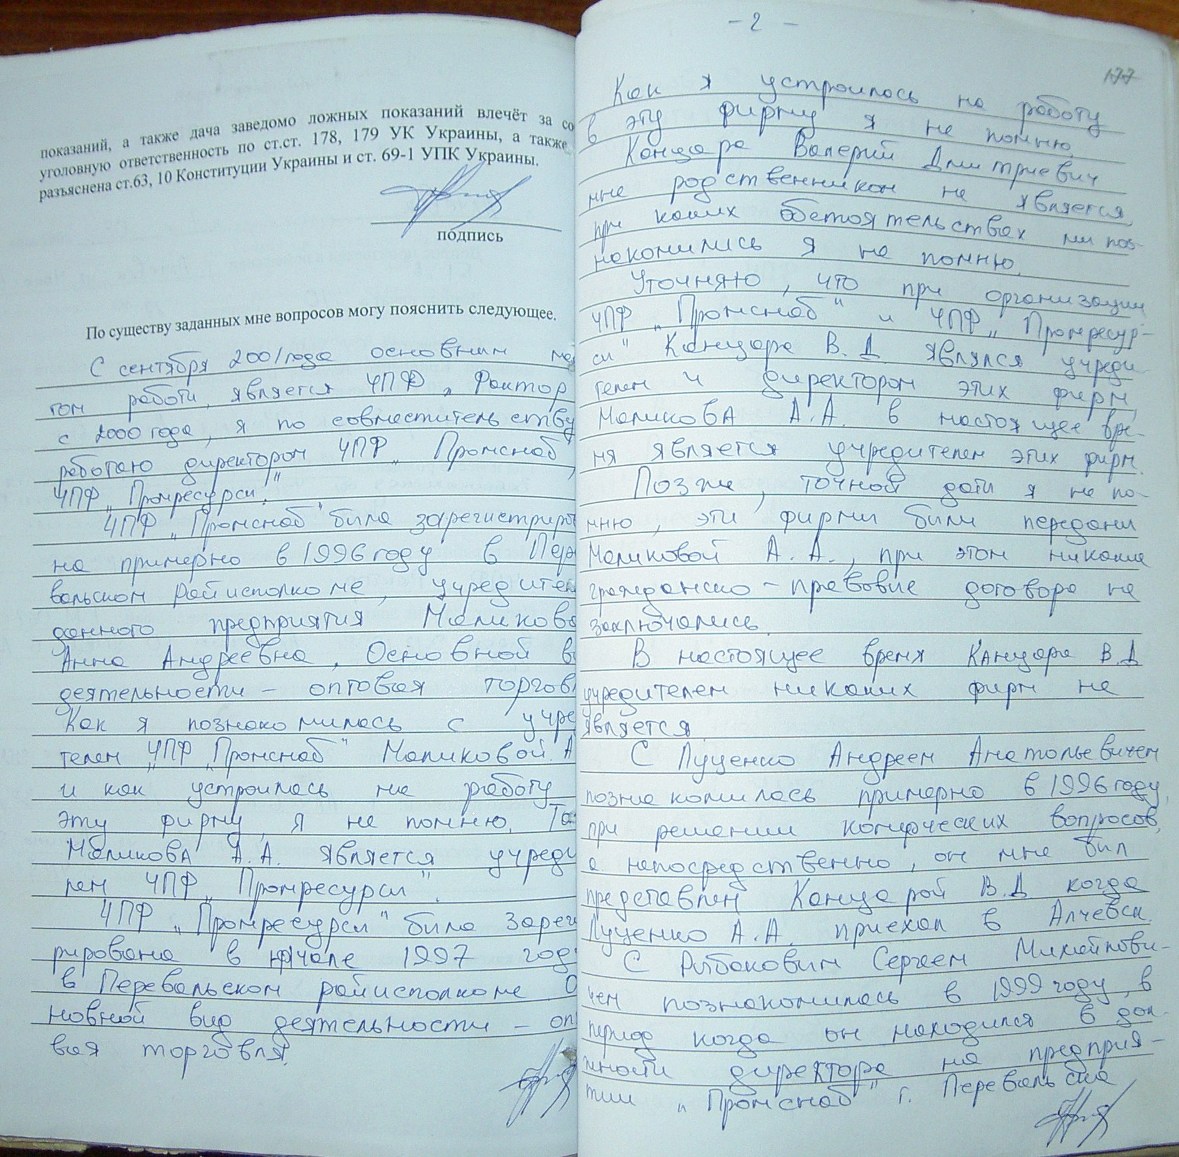 показаний, а также дача заведомо ложных показаний влечёт за со
уголовную ответственность по ст.ст. 178, 179 УК Украины, а также
разъяснена ст.63, 10 Конституции Украины и ст. 69-1 УПК Украины.
подпись
По существу заданных мне вопросов могу пояснить следующее.
С сентября 2001года основним мес
том работи, является ЧПФ „Фактор
с 2000 года, я по совместительству
работаю директором ЧПФ „Промснаб
ЧПФ „Промресурси."
ЧПФ „Промснаб" била зарегистриро
на примерно в 1996 году в Пере
вальском Райисполкоме, учредител
данного предприятия Маликова
Анна Андреевна, Основной ви
деятельности – оптовая торгов
Как я познакомилась с учре
телем „ЧПФ „Промснаб" Маликовой. А
и как устроилась на работу
эту фирму, я не помню. Та
Маликова А.А. является учреди
лем ЧПФ „Промресурси".
ЧПФ „Промресурси" била Зарег
рирована в начале 1997 год
в Перевальском райисполкоме О
новной вид деятельности – оп
вая торговля.
– 2 –
177
Как я устроилась на работу
в эту фирму я не помню.
Канцара Валерий Дмитриевич
мне родственником не является,
при каких обстоятельствах ми поз-
накомились я не помню.
Уточняю, что при организации
ЧПФ „Промснаб" и ЧПФ „Промресур-
си" Канцара В.Д. являлся учреди
телем и директором этих фирм,
Маликова А.А. в настоящее вре-
мя является учредителем этих фирм.
Позже, точной дати я не по-
мню, эти фирми били передани
Маликовой А.А., при этом никакие
гражданско-правовие договора не
заключались.
В настоящее время Канцара В.Д
учредителем никаких фирм не
является.
С Луценко Андреем Анатольевичем
познакомилась примерно в 1996 году,
при решении комерческих вопросов,
а непосредственно, он мне бил
представлен Канцарой В.Д когда
Луценко А.А. приехал в Алчевск.
С Рибаковим Сергеем Михайлови-
чем познакомилась в 1999 году, в
период когда он находился в дол-
жности директора на предприя-
тии „Промснаб" г. Перевальска